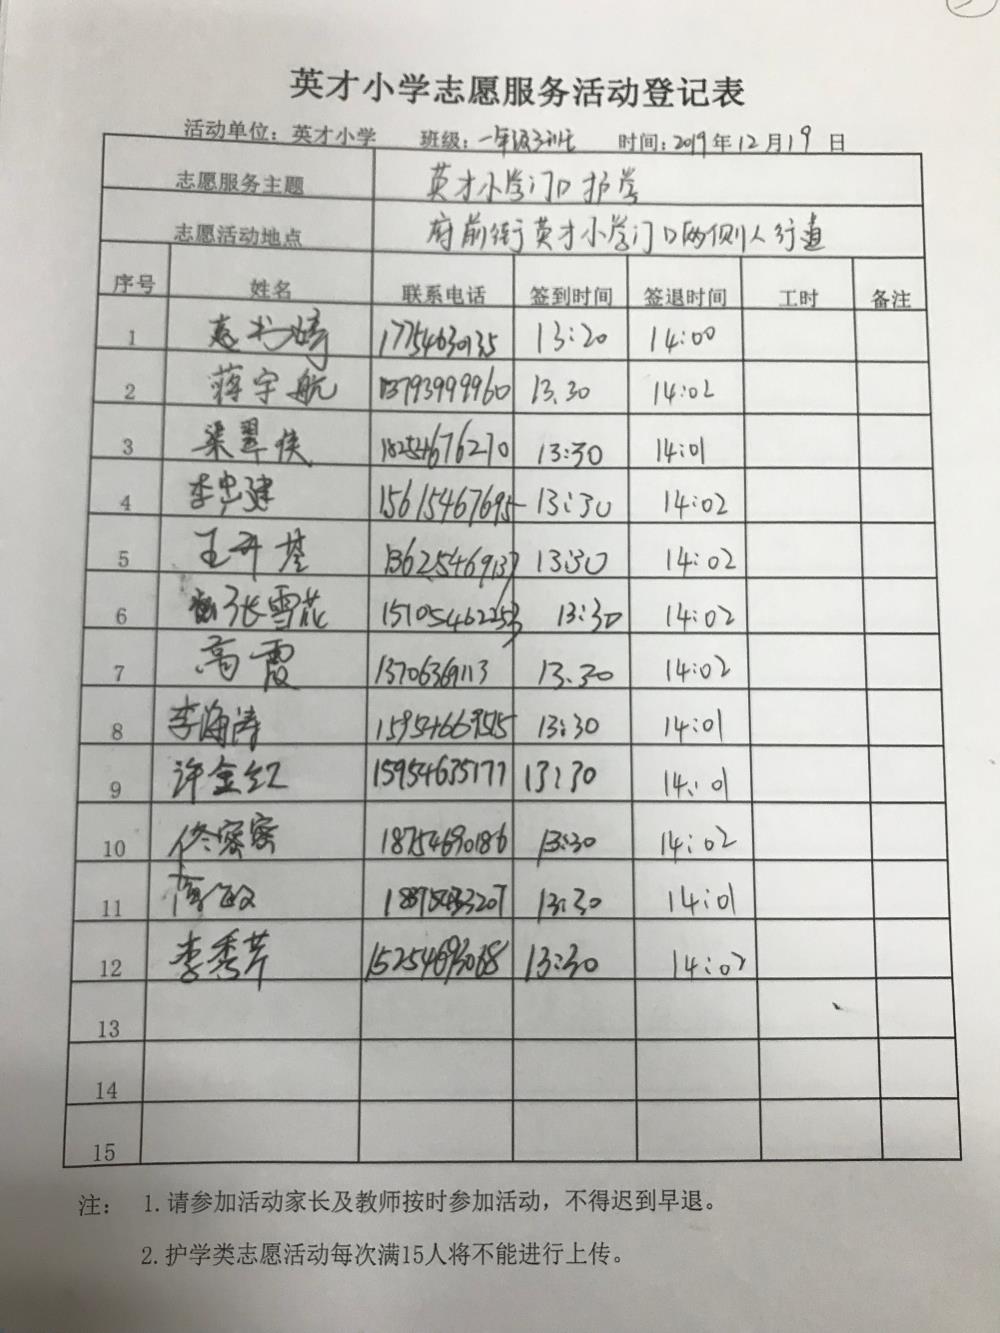 英才小学志愿服务活动登记表
活动单位：英才小学 班级：一年级3班 时间：2019年12月19日
志愿服务主题 英才小学门口护学
志愿活动地点 府前街英才小学门口两侧人行道
序号 姓名 联系电话 签到时间 签退时间 工时 备注
1 17754630135 13:20 14:00
2 蒋宇航 13793999960 13.30 14:02
3 梁翠侠 18254676270 13:30 14:01
4 李忠建 15615467695 13:30 14:02
5 王升 13625469137 13:30 14:02
6 张雪花 15105462253 13:30 14:02
7 高霞 13706369113 13.30 14:02
8 李海涛 13:30 14:01
9 许金红 15954635177 13:30 14:01
10 佟密密 18754690186 13:30 14:02
11 13:30 14:01
12 李秀芹 13:30 14:02
13
14
15
注： 1.请参加活动家长及教师按时参加活动，不得迟到早退。
2.护学类志愿活动每次满15人将不能进行上传。